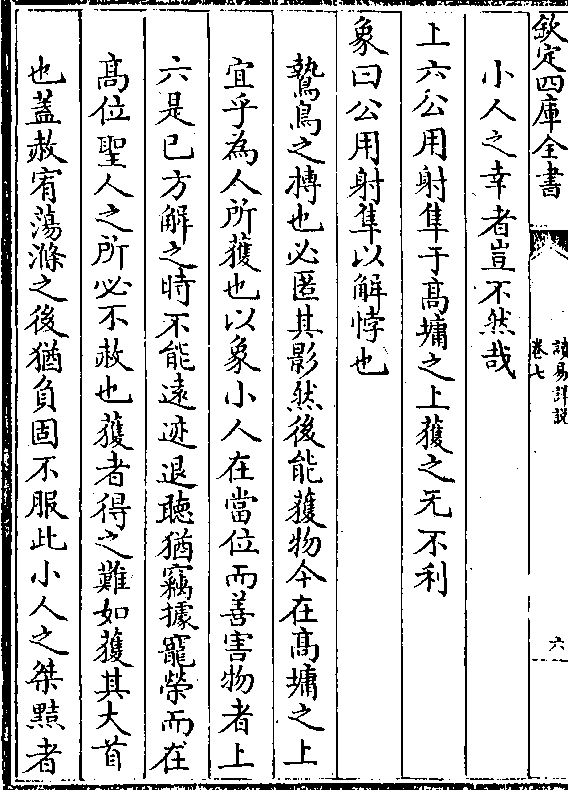 欽定四庫全書
讀易詳説
卷七
六
小人之幸者豈不然哉
上六公用射隼于髙墉之上獲之无不利
象曰公用射隼以解悖也
鷙鳥之搏也必匿其影然後能獲物今在髙墉之上
宜乎為人所獲也以象小人在當位而善害物者上
六是已方解之時不能逺迹退聴猶竊據寵榮而在
髙位聖人之所必不赦也獲者得之難如獲其大首
也蓋赦宥蕩滌之後猶負固不服此小人之桀黠者